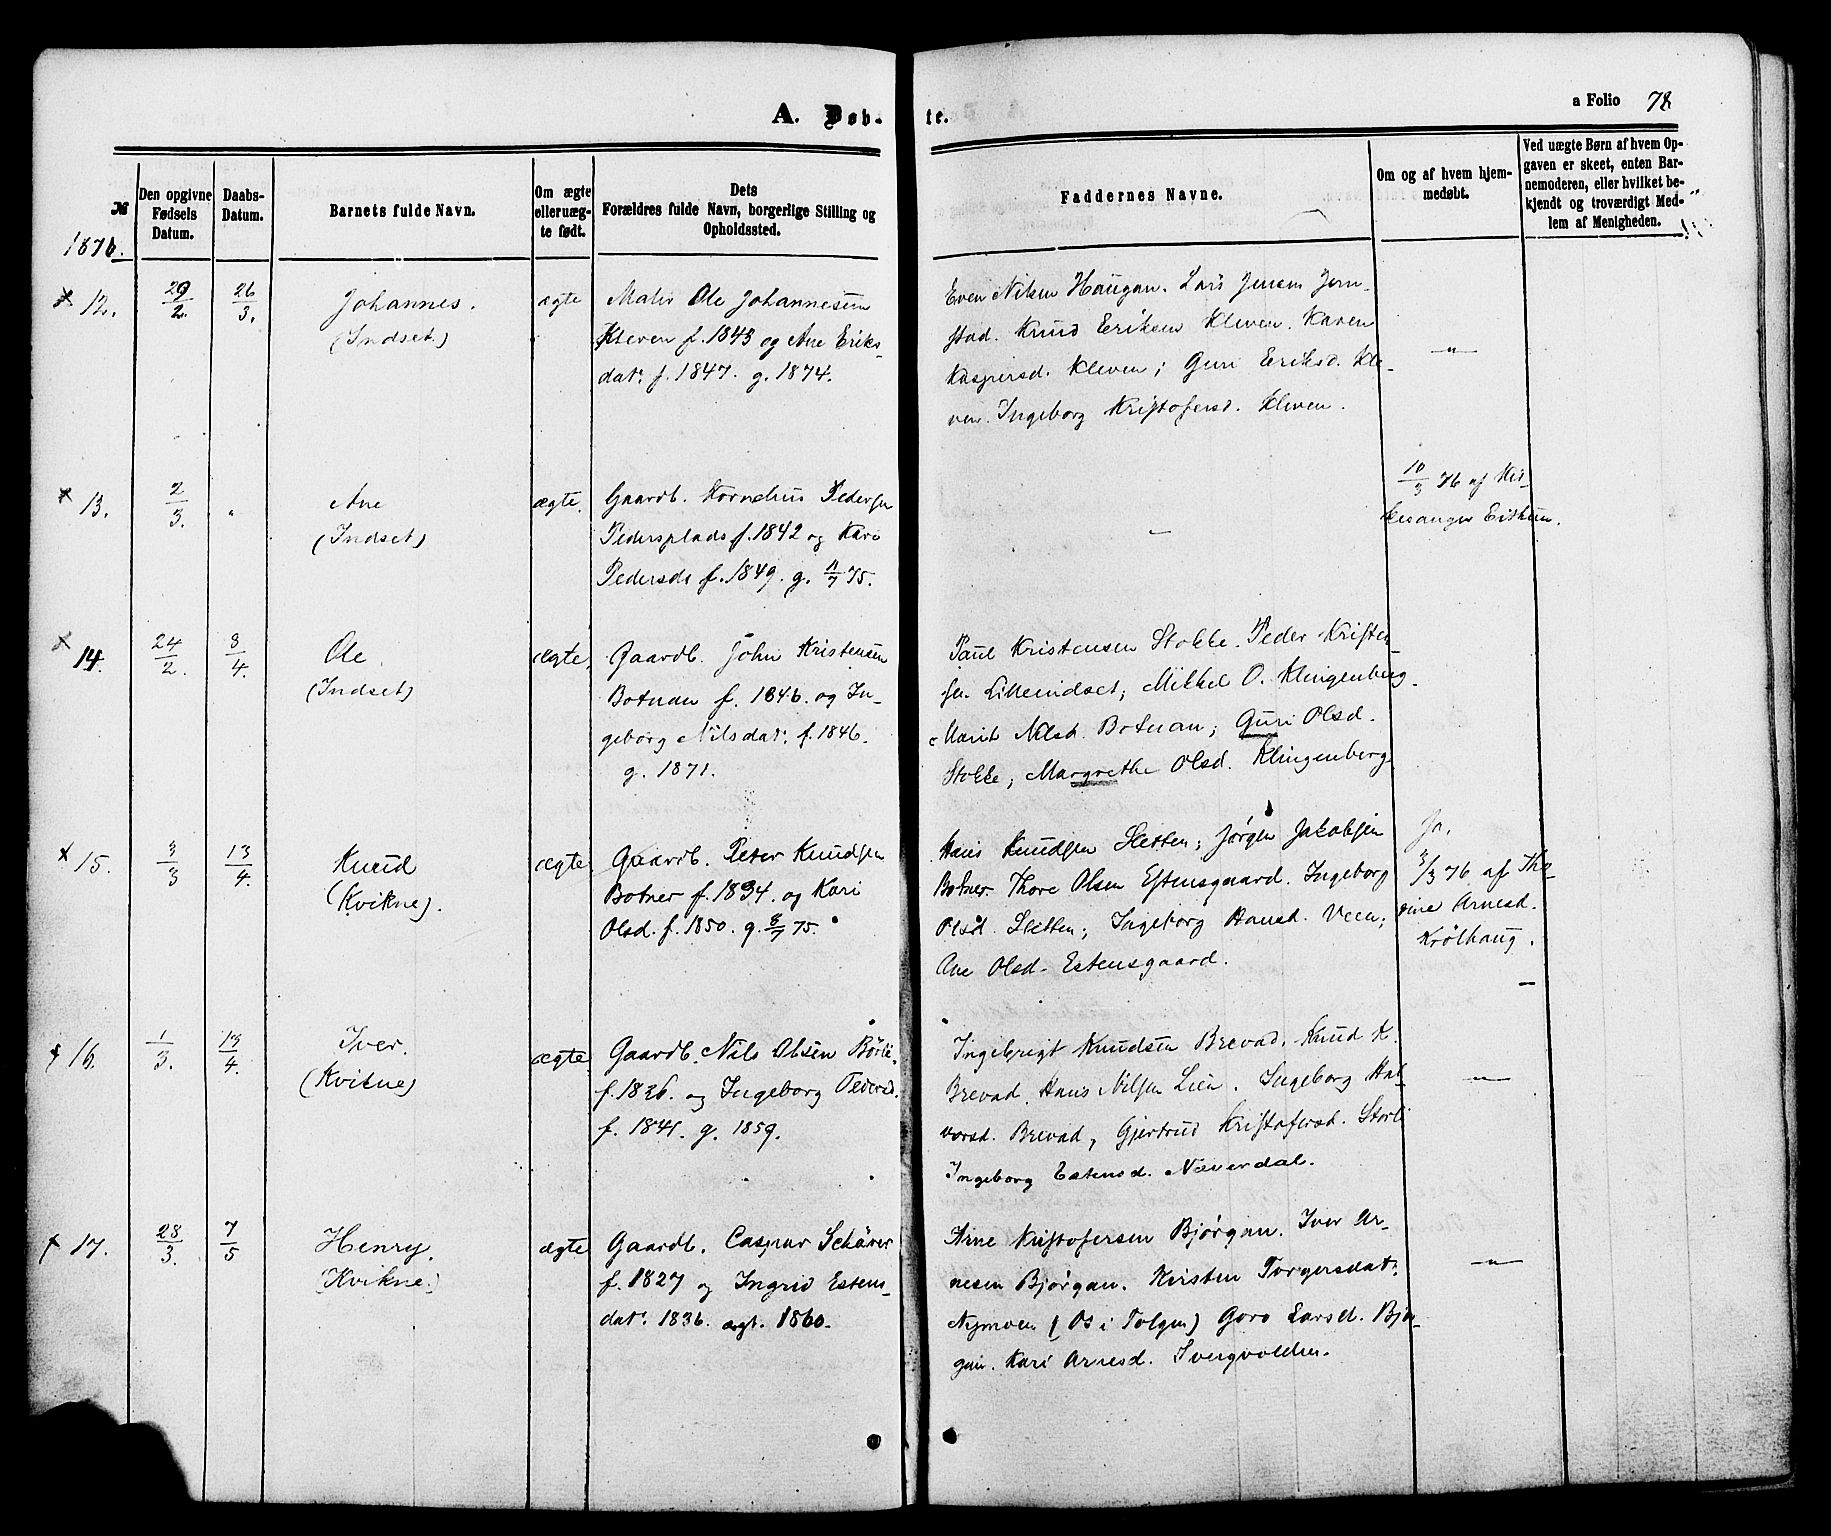 A. Døb-
te.
a Folio 78
№
Den opgivne
Fødsels
Datum.
Daabs-
Datum.
Barnets fulde Navn.
Om ægte
eller uæg-
te født.
Dets
Forældres fulde Navn, borgerlige Stilling og
Opholdssted.
Faddernes Navne.
Om og af hvem hjem-
medøbt.
Ved uægte Børn af hvem Op-
gaven er skeet, enten Bar-
nemoderen, eller hvilket be-
kjendt og troværdigt Med-
lem af Menigheden.
1876.
12.
29/2.
26/3.
Johannes.
(Indset.)
ægte
Maler Ole Johannesen
Kleven f. 1843 og Ane Eriks-
dat. f. 1847. g. 1874.
Even Nilsen Haugan. Lars Jensen Jern-
stad. Knud Eriksen Kleven. Karen
Kaspersd. Kleven; Guri Eriksd. Kle-
ven. Ingeborg Kristofersd. Kleven.
—"—
13.
2/3.
"
Ane
(Indset)
ægte.
Gaardb. Kornelius Pedersen
Pedersplads f. 1842 og Kari
Pedersd. f. 1849. g. 11/7 75.
—
10/3 76 af
Eithun.
14.
24/2.
3/4.
Ole
(Indset)
ægte.
Gaardb. John Kristensen
Botnan f. 1846. og In-
geborg Nilsdat. f. 1846.
g. 1871.
Paul Kristensen Stokke. Peder Kristen-
sen Lilleindset; Mikkel O. Klingenberg.
Marit Nilsd. Botnan; Guri Olsd.
Stokke; Margrethe Olsd. Klingenberg
15.
3/3
13/4.
Knud
(Kvikne).
ægte.
Gaardb. Peter Knudsen
Botner f. 1834. og Kari
Olsd. f. 1850. g. 8/7 75.
Hans Knudsen Sletten; Jørgen Jakobsen
Botner. Thore Olsen Estensgaard. Ingeborg
Olsd. Sletten; Ingeborg Hansd. Veen;
Ane Olsd. Estensgaard.
Ja.
3/3 76 af Tho-
rine Arnesd.
Krölhaug.
—
16.
1/3.
13/4.
Iver.
(Kvikne)
ægte
Gaardb. Nils Olsen Børli
f. 1836. og Ingeborg Pedersd.
f. 1841. g. 1859.
Ingebrigt Knudsen Brevad. Knud K.
Brevad. Hans Nilsen Lien. Ingeborg Hal-
vorsd. Brevad, Gjertrud Kristofersd. Storli
Ingeborg Estensd. Næverdal.
—"—
17.
28/3.
7/5
Henry.
(Kvikne.)
ægte
Gaardb. Caspar Schärer
f. 1827 og Ingrid Estens-
dat. 1836. ægt. 1860.
Arne Kristofersen Bjørgan. Iver Ar-
nesen Bjørgan. Kirsten Torgersdat.
Nymoen (Os i Tolgen) Goro Larsd. Bjør-
gan. Kari Arnesd. Ivergvolden.
—"—